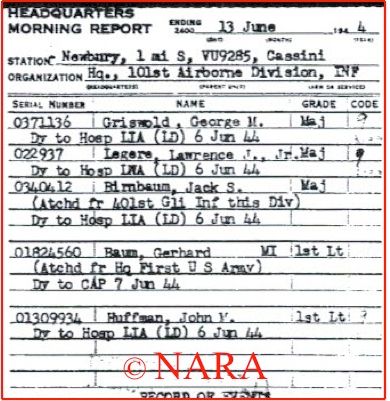 HEADQUARTERS
MORNING REPORT ENDING 2400 13 June 194 4
STATION Newbury, 1 mi S, VU9285, Cassini
ORGANIZATION Hq., 101st Airborne Division, INF
(HEADQUARTERS) (PARENT UNIT) (ARM OR SERVICE)
SERIAL NUMBER NAME GRADE CODE
0371136 Griswold, George M. Maj
Dy to Hosp LIA (LD) 6 Jun 44
022937 Legere, Lawrence J., Jr. Maj
Dy to Hosp LWA (LD) 6 Jun 44
0340412 Birnbaum, Jack S. Maj
(Atchd fr 401st Gli Inf this Div)
Dy to Hosp LIA (LD) 6 Jun 44
01824560 Baum, Gerhard MI 1st Lt
(Atchd fr Hq First U S Army)
Dy to CAP 7 Jun 44
01309934 Huffman, John 1st Lt
Dy to Hosp LIA (LD) 6 Jun 44
© NARA
RECORD OF EVENTS